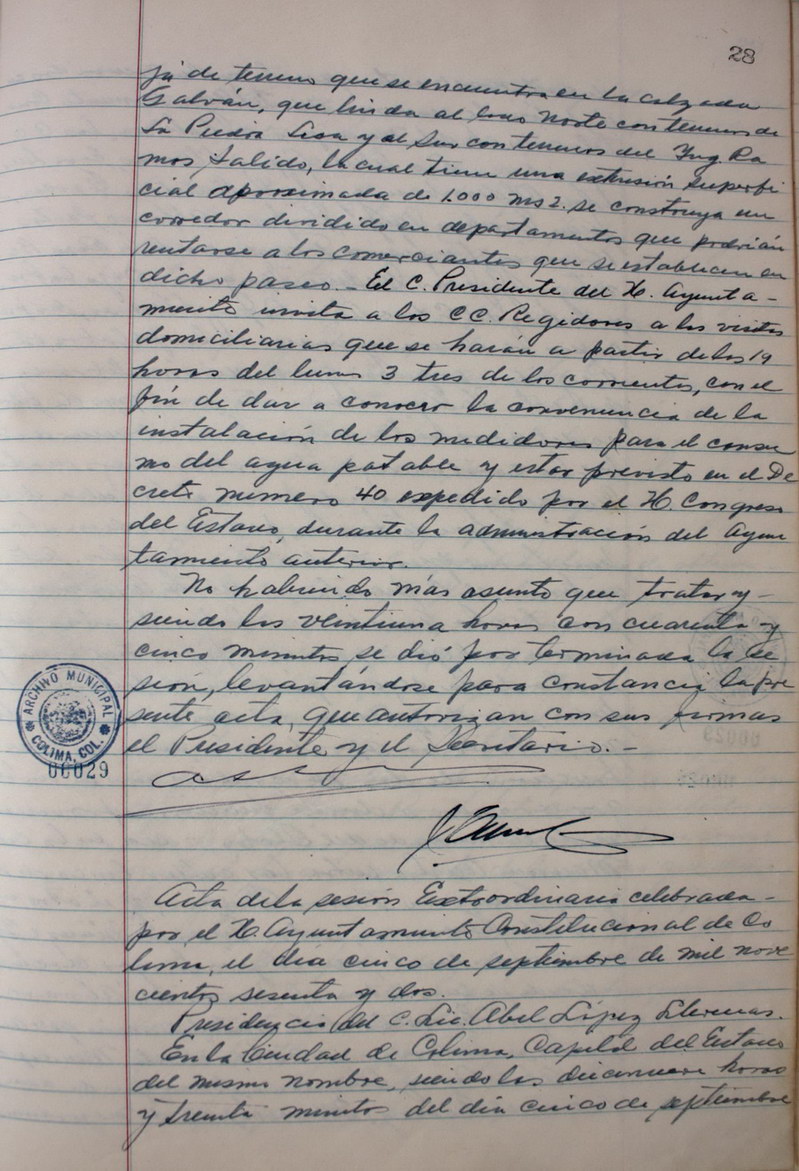 28
ja de terreno que se encuentra en la calzada
Galván, que linda al lado Norte con terrenos de
La Piedra Lisa y al Sur con terrenos del Ing. Ra
mos Salido, la cual tiene una extensión superfi
cial aproximada de 1.000 ms2. se construya un
corredor dividido en departamentos que podrían
rentarse a los comerciantes que se establecen en
dicho paseo. - El C. Presidente del H. Ayunta -
miento invita a los CC. Regidores a las visitas
domiciliarias que se harán a partir de las 19
horas del lunes 3 tres de los corrientes, con el
fin de dar a conocer la conveniencia de la
instalación de los medidores para el consu
mo del agua potable y estar previsto en el De
creto número 40 expedido por el H. Congreso
del Estado, durante la administración del Ayun
tamiento anterior.
No habiendo más asunto que tratar y -
siendo las veintiuna horas con cuarenta y
cinco minutos, se dió por terminada la se
sión, levantándose para constancia la pre
sente acta, que autorizan con sus firmas
el Presidente y el Secretario. -
ARCHIVO MUNICIPAL
COLIMA, COL.
00029
Acta de la sesión Extraordinaria celebrada -
por el H. Ayuntamiento Constitucional de Co
lima, el día cinco de septiembre de mil nove
cientos sesenta y dos.
Presidencia del C. Lic. Abel López Llerenas.
En la Ciudad de Colima, Capital del Estado
del mismo nombre, siendo las diecinueve horas
y treinta minutos del día cinco de septiembre